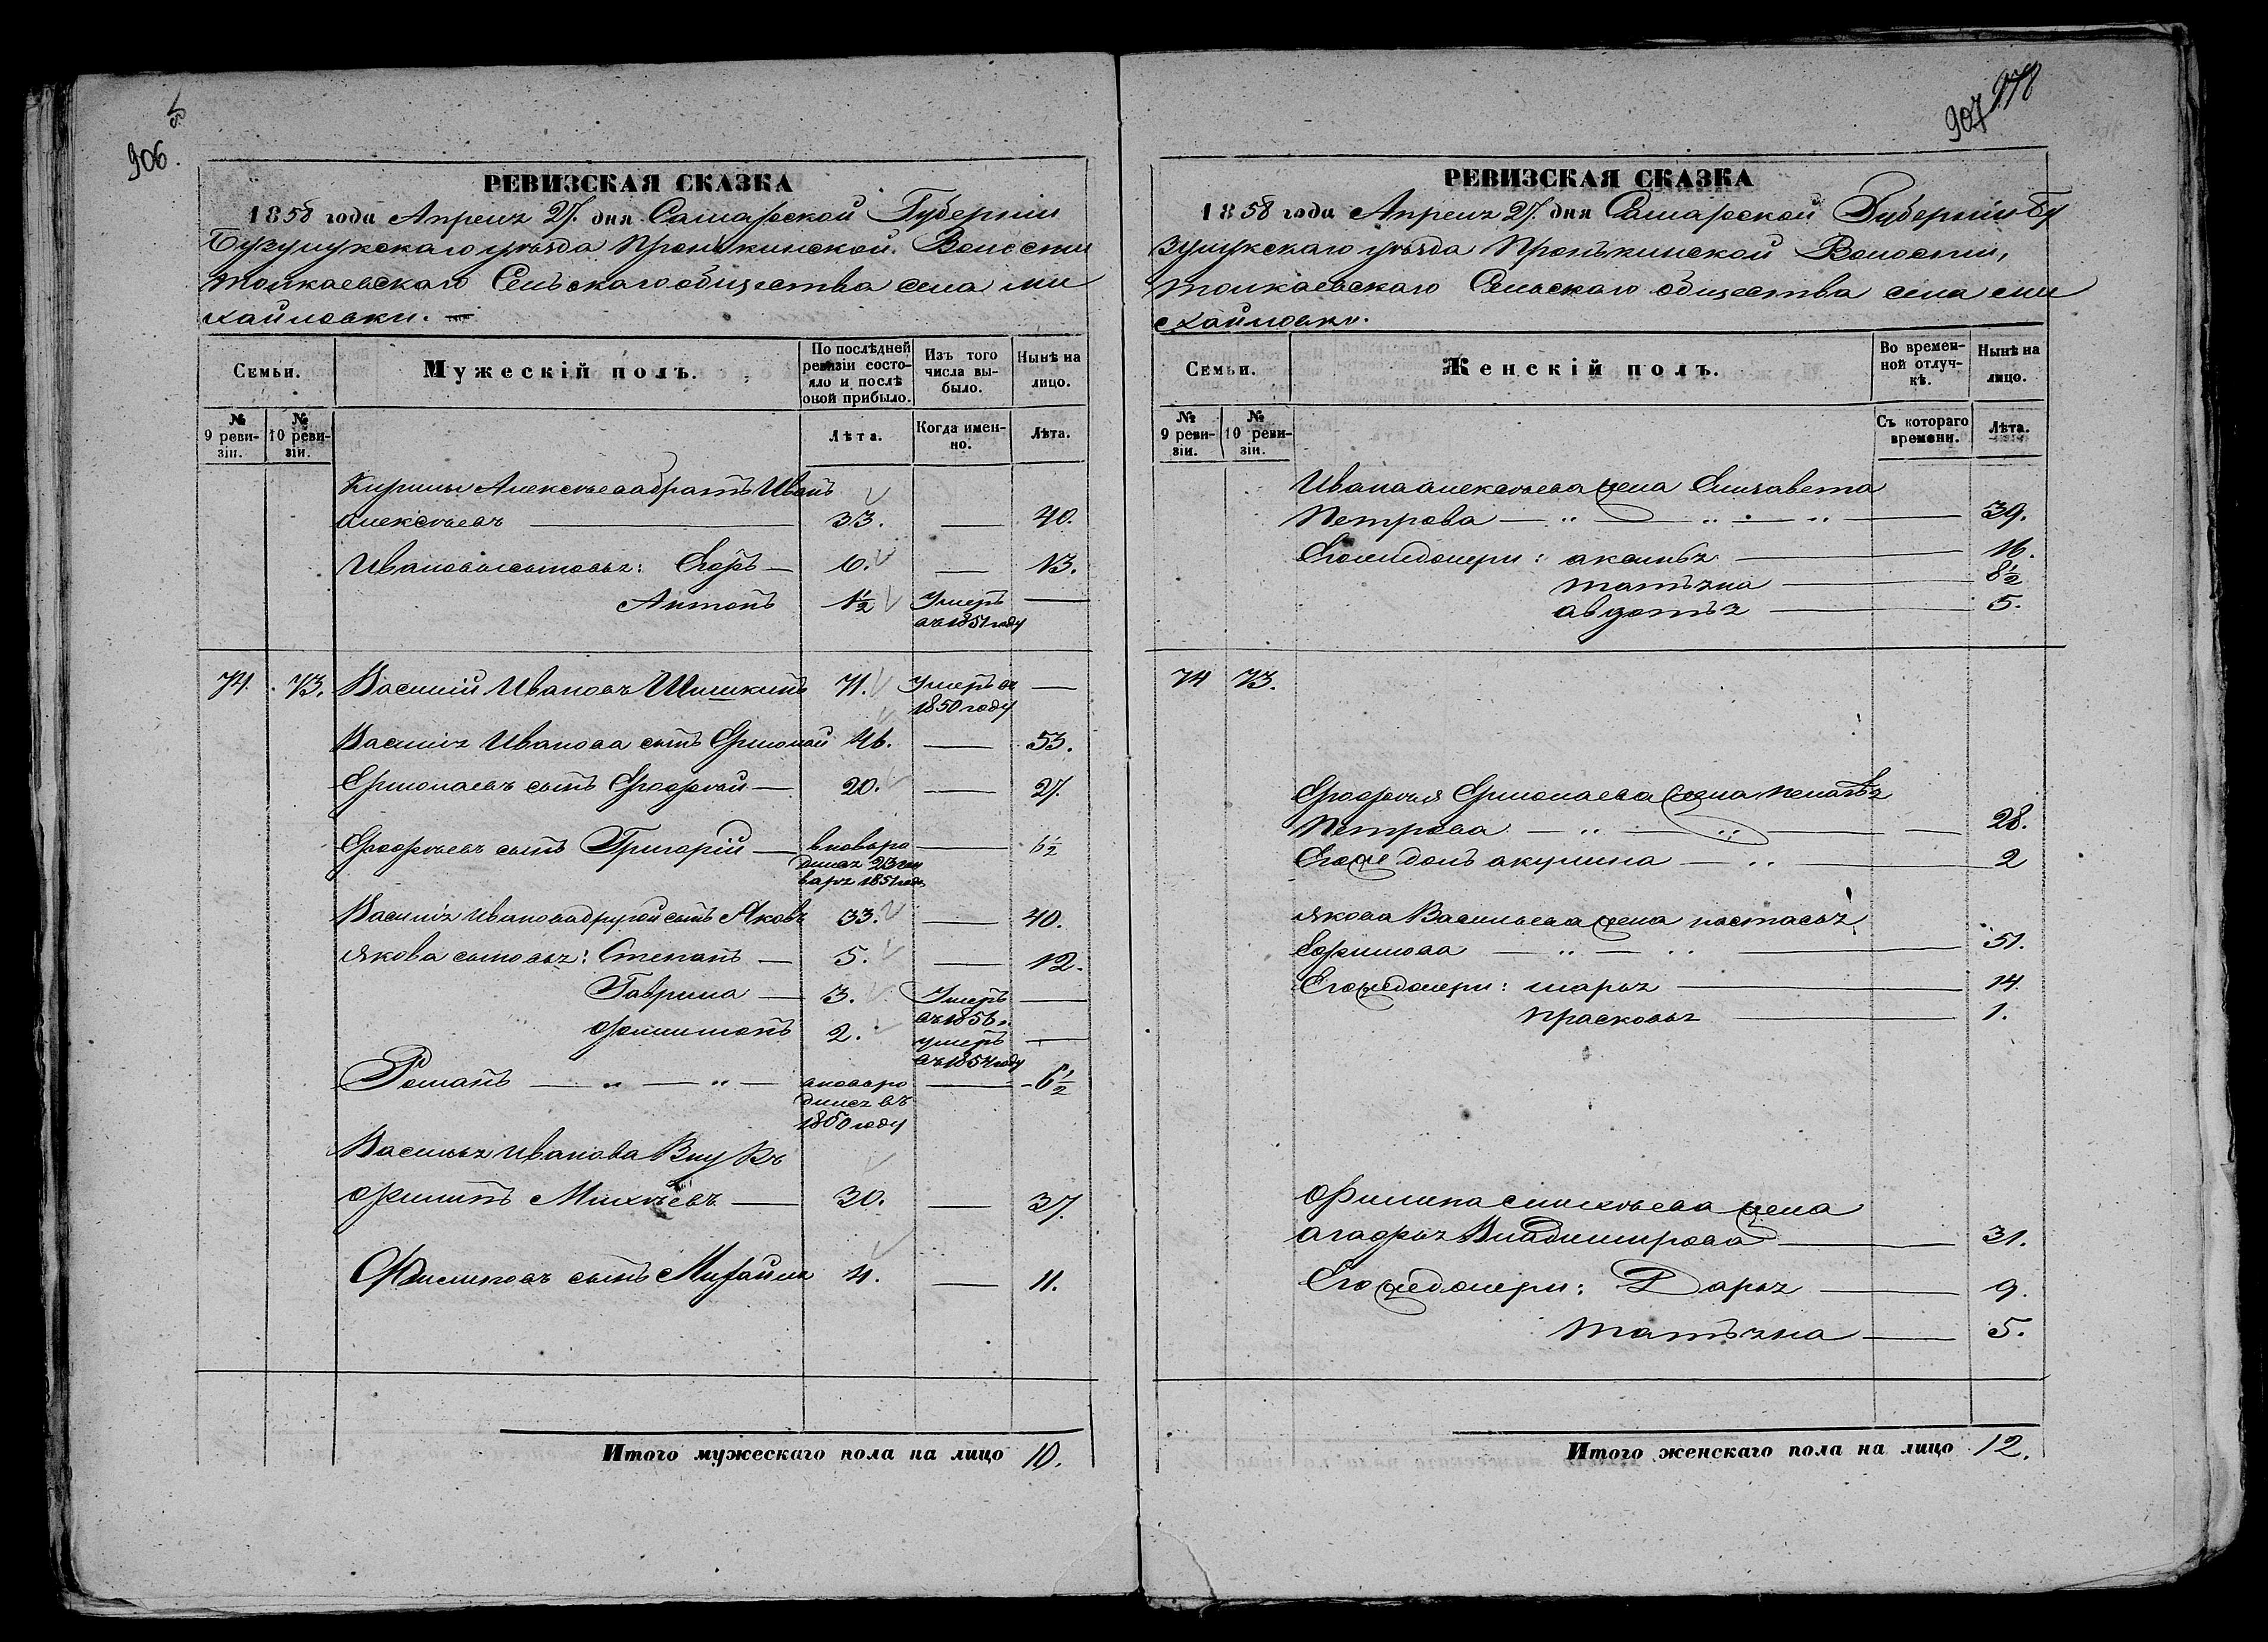 906.
РЕВИЗСКАЯ СКАЗКА
1858 года Апреля 27. дня Самарской Губернии
Бузулукскаго уѣзда Пронькинской Волости
Толкаевскаго Сельскаго общества села Ми
хайловки.
Семьи.
Мужескій полъ.
По послѣдней ревизіи состояло и послѣ оной прибыло.
Изъ того числа выбыло.
Нынѣ на лицо.
№ 9 ревизіи.
№ 10 ревизіи.
Лѣта.
Когда именно.
Лѣта.
Кирилы Алексѣева братъ Иванъ
Алексѣевъ 33. — 40.
Ивановы сыновья: Егоръ — 6. — 13.
Антонъ 1½ Умеръ въ 1851 году —
74. 73. Василій Ивановъ Шишкинъ 71. Умеръ въ 1850 году —
Василія Иванова сынъ Ермолай 46. — 53.
Ермолаевъ сынъ Ерофѣй — 20. — 27.
Ерофѣевъ сынъ Григорій — вновь ро — 6½
дился 23 Ян
варя 1851 года
Василія Иванова другой сынъ Яковъ 33. — 40.
Якова сыновья: Степанъ — 5. — 12.
Гаврила — 3. Умеръ въ 1856 г. —
Филимонъ 2. умеръ въ 1854 году —
Романъ — „ — „ — вновь ро — 6½
дился въ
1850 году
Василья Иванова Внукъ
Филипъ Михѣевъ — 30. — 37.
Филиповъ сынъ Михайла 4. — 11.
Итого мужескаго пола на лицо 10.
907
РЕВИЗСКАЯ СКАЗКА
1858 года Апреля 27. дня Самарской Губернии Бу
зулукскаго уѣзда Пронькинской Волости,
Толкаевскаго Сельскаго общества села Ми
хайловки.
Семьи.
Женскій полъ.
Во временной отлучкѣ.
Нынѣ на лицо.
№ 9 ревизіи.
№ 10 ревизіи.
Съ котораго времени.
Лѣта.
Ивана Алексѣева жена Елизавета
Петрова — „ — „ — „ — 39.
Его же дочери: Аксинья — 16.
Татьяна — 8½
Авдотья — 5.
74 73.
Ерофѣя Ермолаева жена Пелагѣя
Петрова — „ — „ — 28.
Его же дочь Акулина — „ — 2
Якова Васильева жена Настасья
Ефимова — „ — „ — 51.
Его же дочери: Марья — 14.
Прасковья — 1.
Филипа Михѣева жена
Агафья Владимирова — 31.
Его же дочери: Дарья — 9.
Татьяна — 5.
Итого женскаго пола на лицо 12.